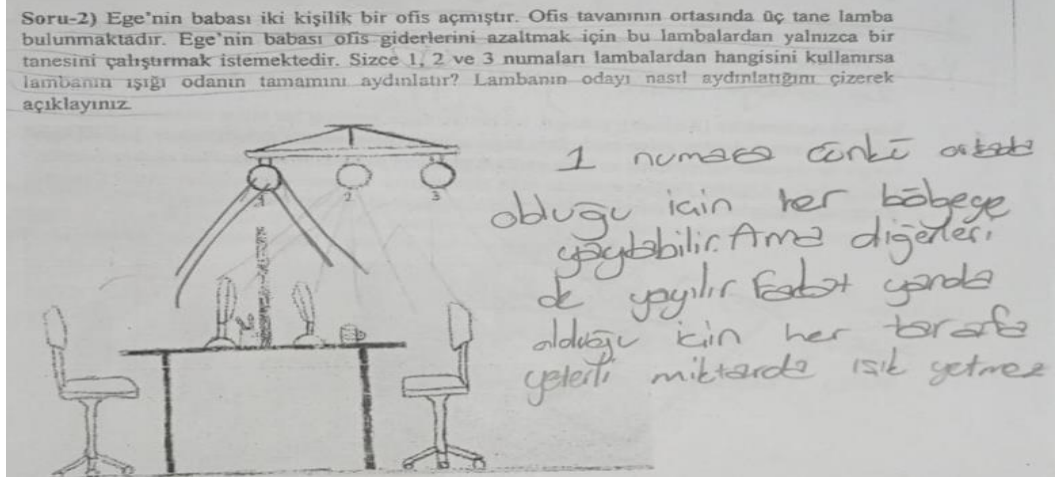 Soru-2) Ege'nin babası iki kişilik bir ofis açmıştır. Ofis tavanının ortasında üç tane lamba
bulunmaktadır. Ege'nin babası ofis giderlerini azaltmak için bu lambalardan yalnızca bir
tanesini çalıştırmak istemektedir. Sizce 1, 2 ve 3 numaraları lambalardan hangisini kullanırsa
lambanın ışığı odanın tamamını aydınlatır? Lambanın odayı nasıl aydınlatığını çizerek
açıklayınız.
1 2 3
1 numara çünkü ortada
olduğu için her bölgeye
yayılabilir. Ama diğerleri
de yayılır Fakat yanda
olduğu için her tarafa
yeterli miktarda ışık yetmez